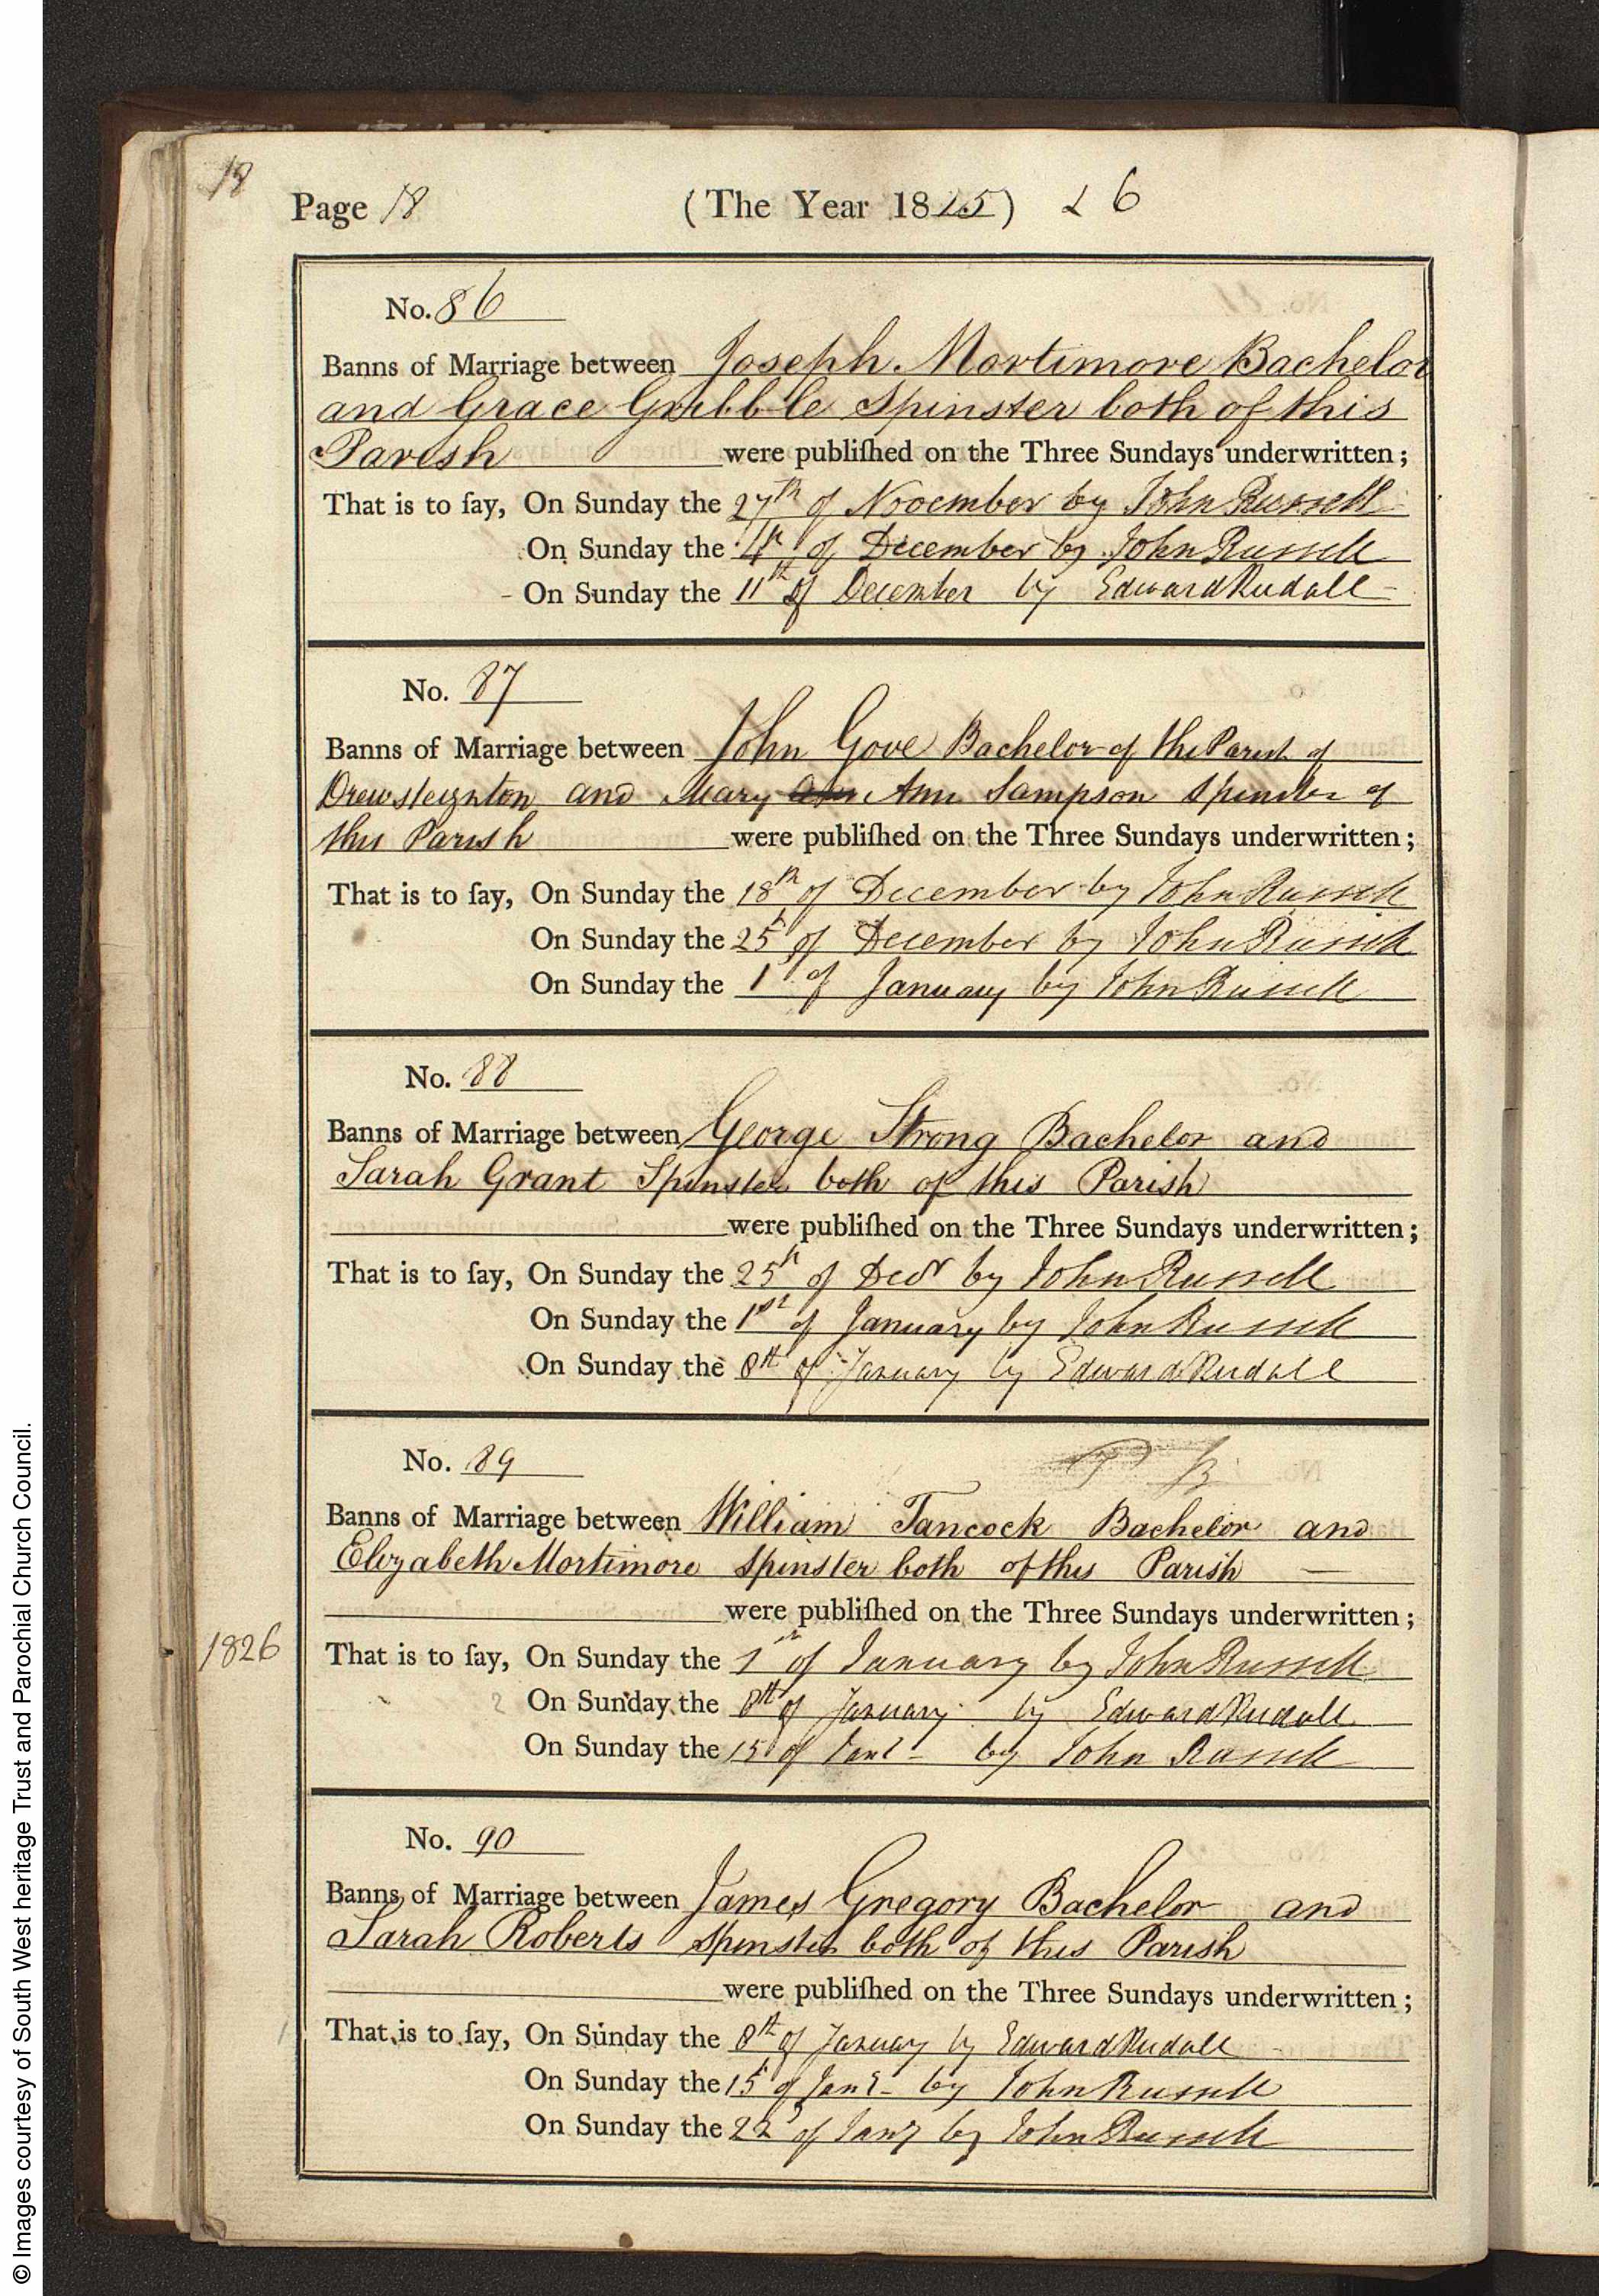 18
Page 18 (The Year 1825) & 6
No. 86
Banns of Marriage between Joseph Mortimore Bachelor
and Grace Gribble Spinster both of this
Parish were publiſhed on the Three Sundays underwritten;
That is to ſay, On Sunday the 27th of November by John Russell
On Sunday the 4th of December by John Russell
On Sunday the 11th of December by Edward Rudall
No. 87
Banns of Marriage between John Gove Bachelor of the Parish of
Drewsteignton and Mary Ann Sampson Spinster of
this Parish were publiſhed on the Three Sundays underwritten;
That is to ſay, On Sunday the 18th of December by John Russell
On Sunday the 25th of December by John Russell
On Sunday the 1st of January by John Russell
No. 88
Banns of Marriage between George Strong Bachelor and
Sarah Grant Spinster both of this Parish
were publiſhed on the Three Sundays underwritten;
That is to ſay, On Sunday the 25th of Decr by John Russell
On Sunday the 1st of January by John Russell
On Sunday the 8th of January by Edward Rudall
No. 89
Banns of Marriage between William Tancock Bachelor and
Elizabeth Mortimore Spinster both of this Parish
were publiſhed on the Three Sundays underwritten;
1826 That is to ſay, On Sunday the 1st of January by John Russell
On Sunday the 8th of January by Edward Rudall
On Sunday the 15 of by John Russell
No. 90
Banns of Marriage between James Gregory Bachelor and
Sarah Roberts Spinster both of this Parish
were publiſhed on the Three Sundays underwritten;
That is to ſay, On Sunday the 8th of January by Edward Rudall
On Sunday the 15 of by John Russell
On Sunday the 22 of Jany by John Russell
© Images courtesy of South West heritage Trust and Parochial Church Council.